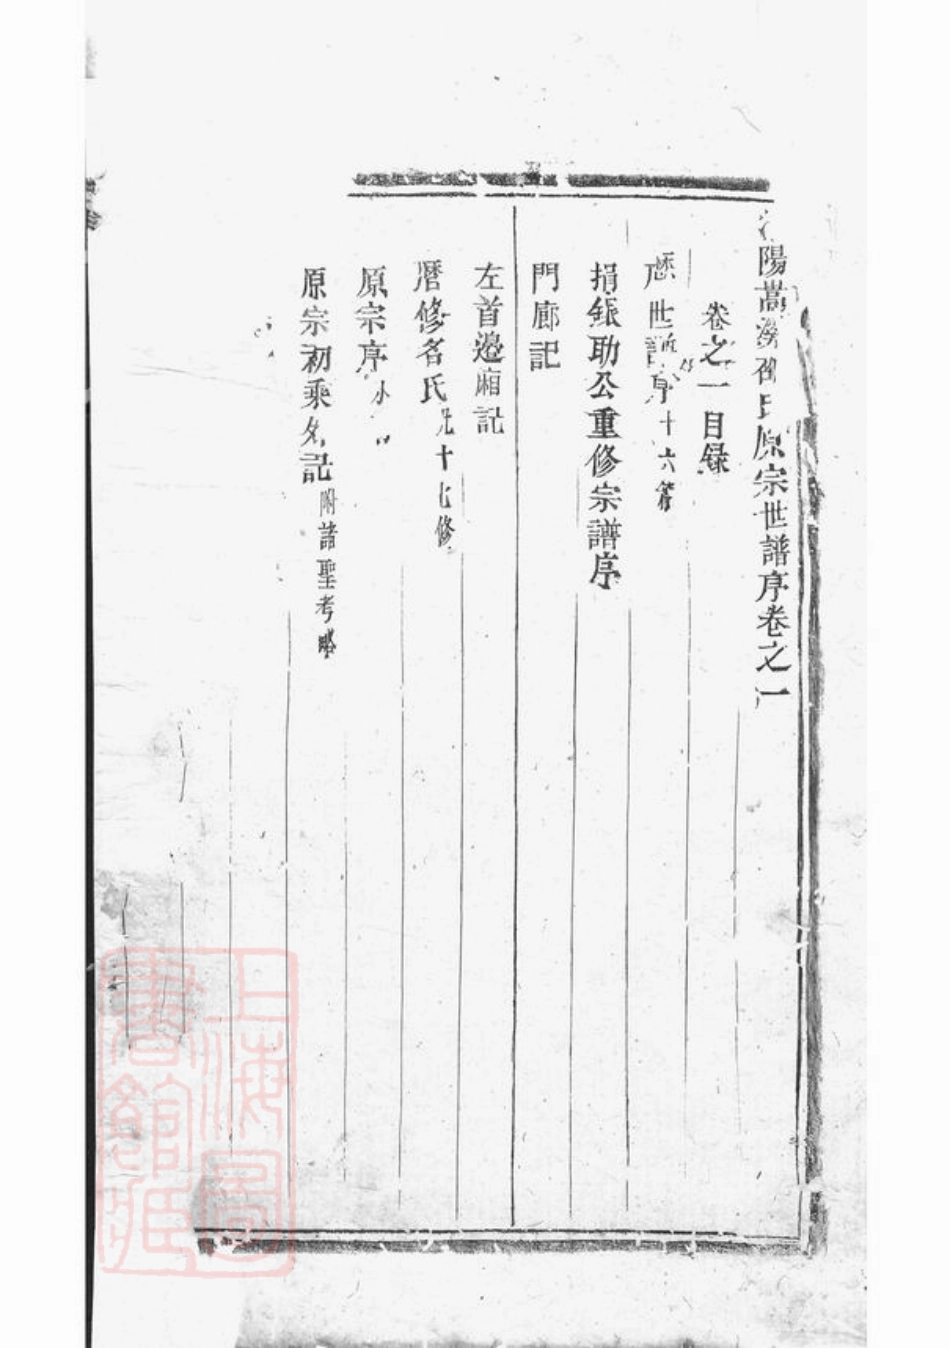 陽嵩溪 氏原宗世譜序卷之一
卷之一目錄
歷世譜序十六篇
捐銀助公重修宗譜序
門廊記
左首邊廂記
曆修名氏 十七修
原宗序
原宗初乘 記附諸聖考略
上海圖書館藏